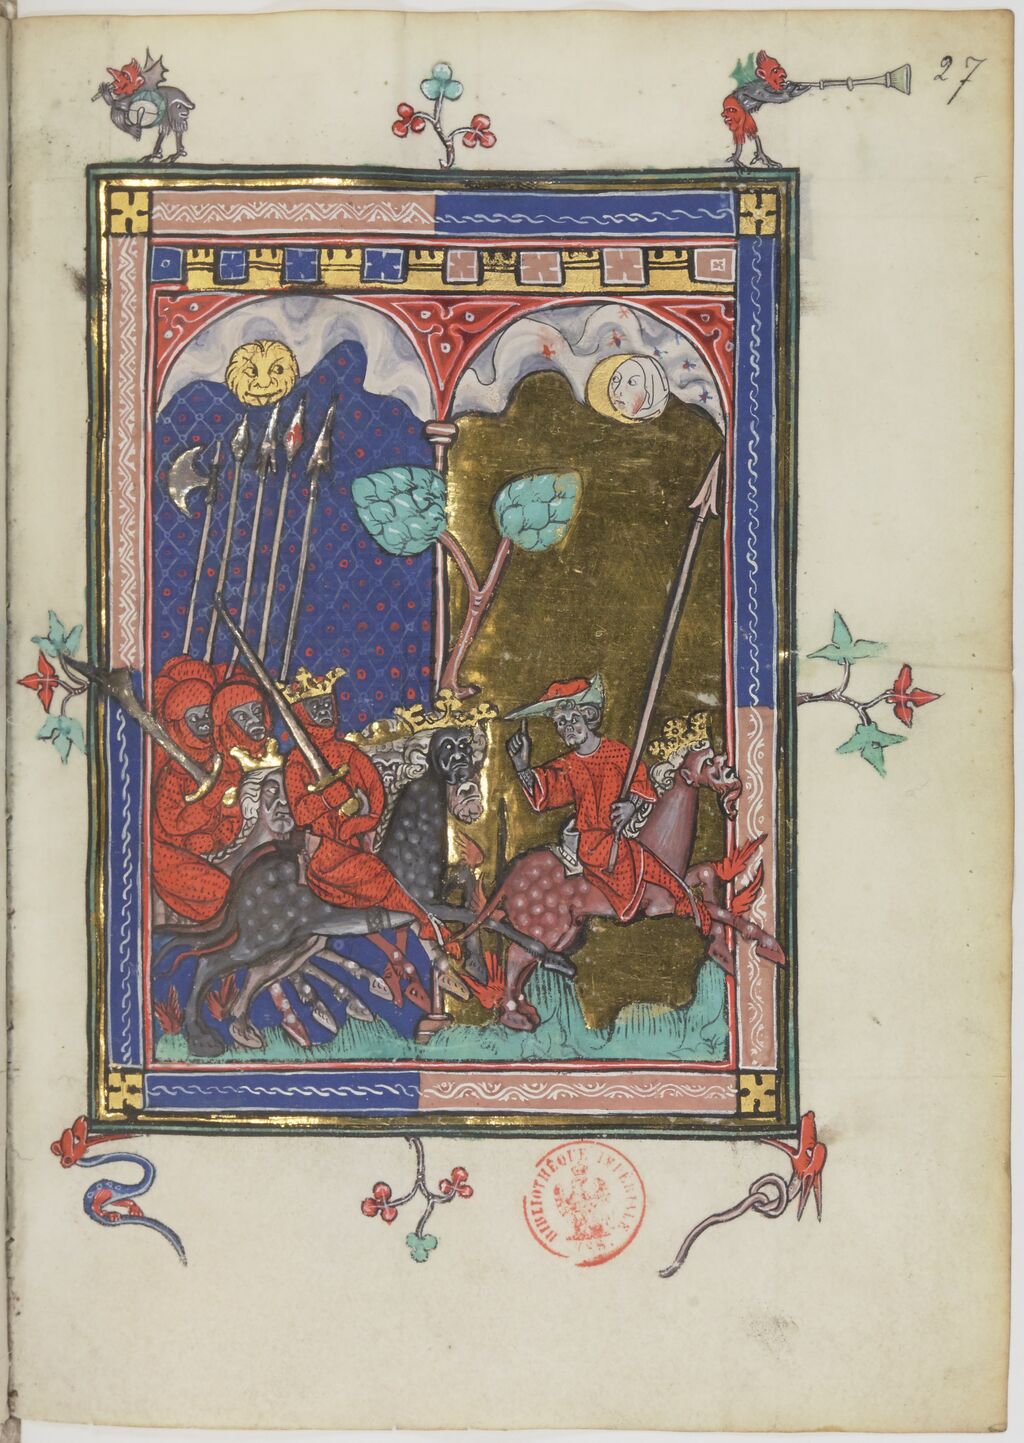 27
BIBLIOTHÈQUE IMPÉRIALE